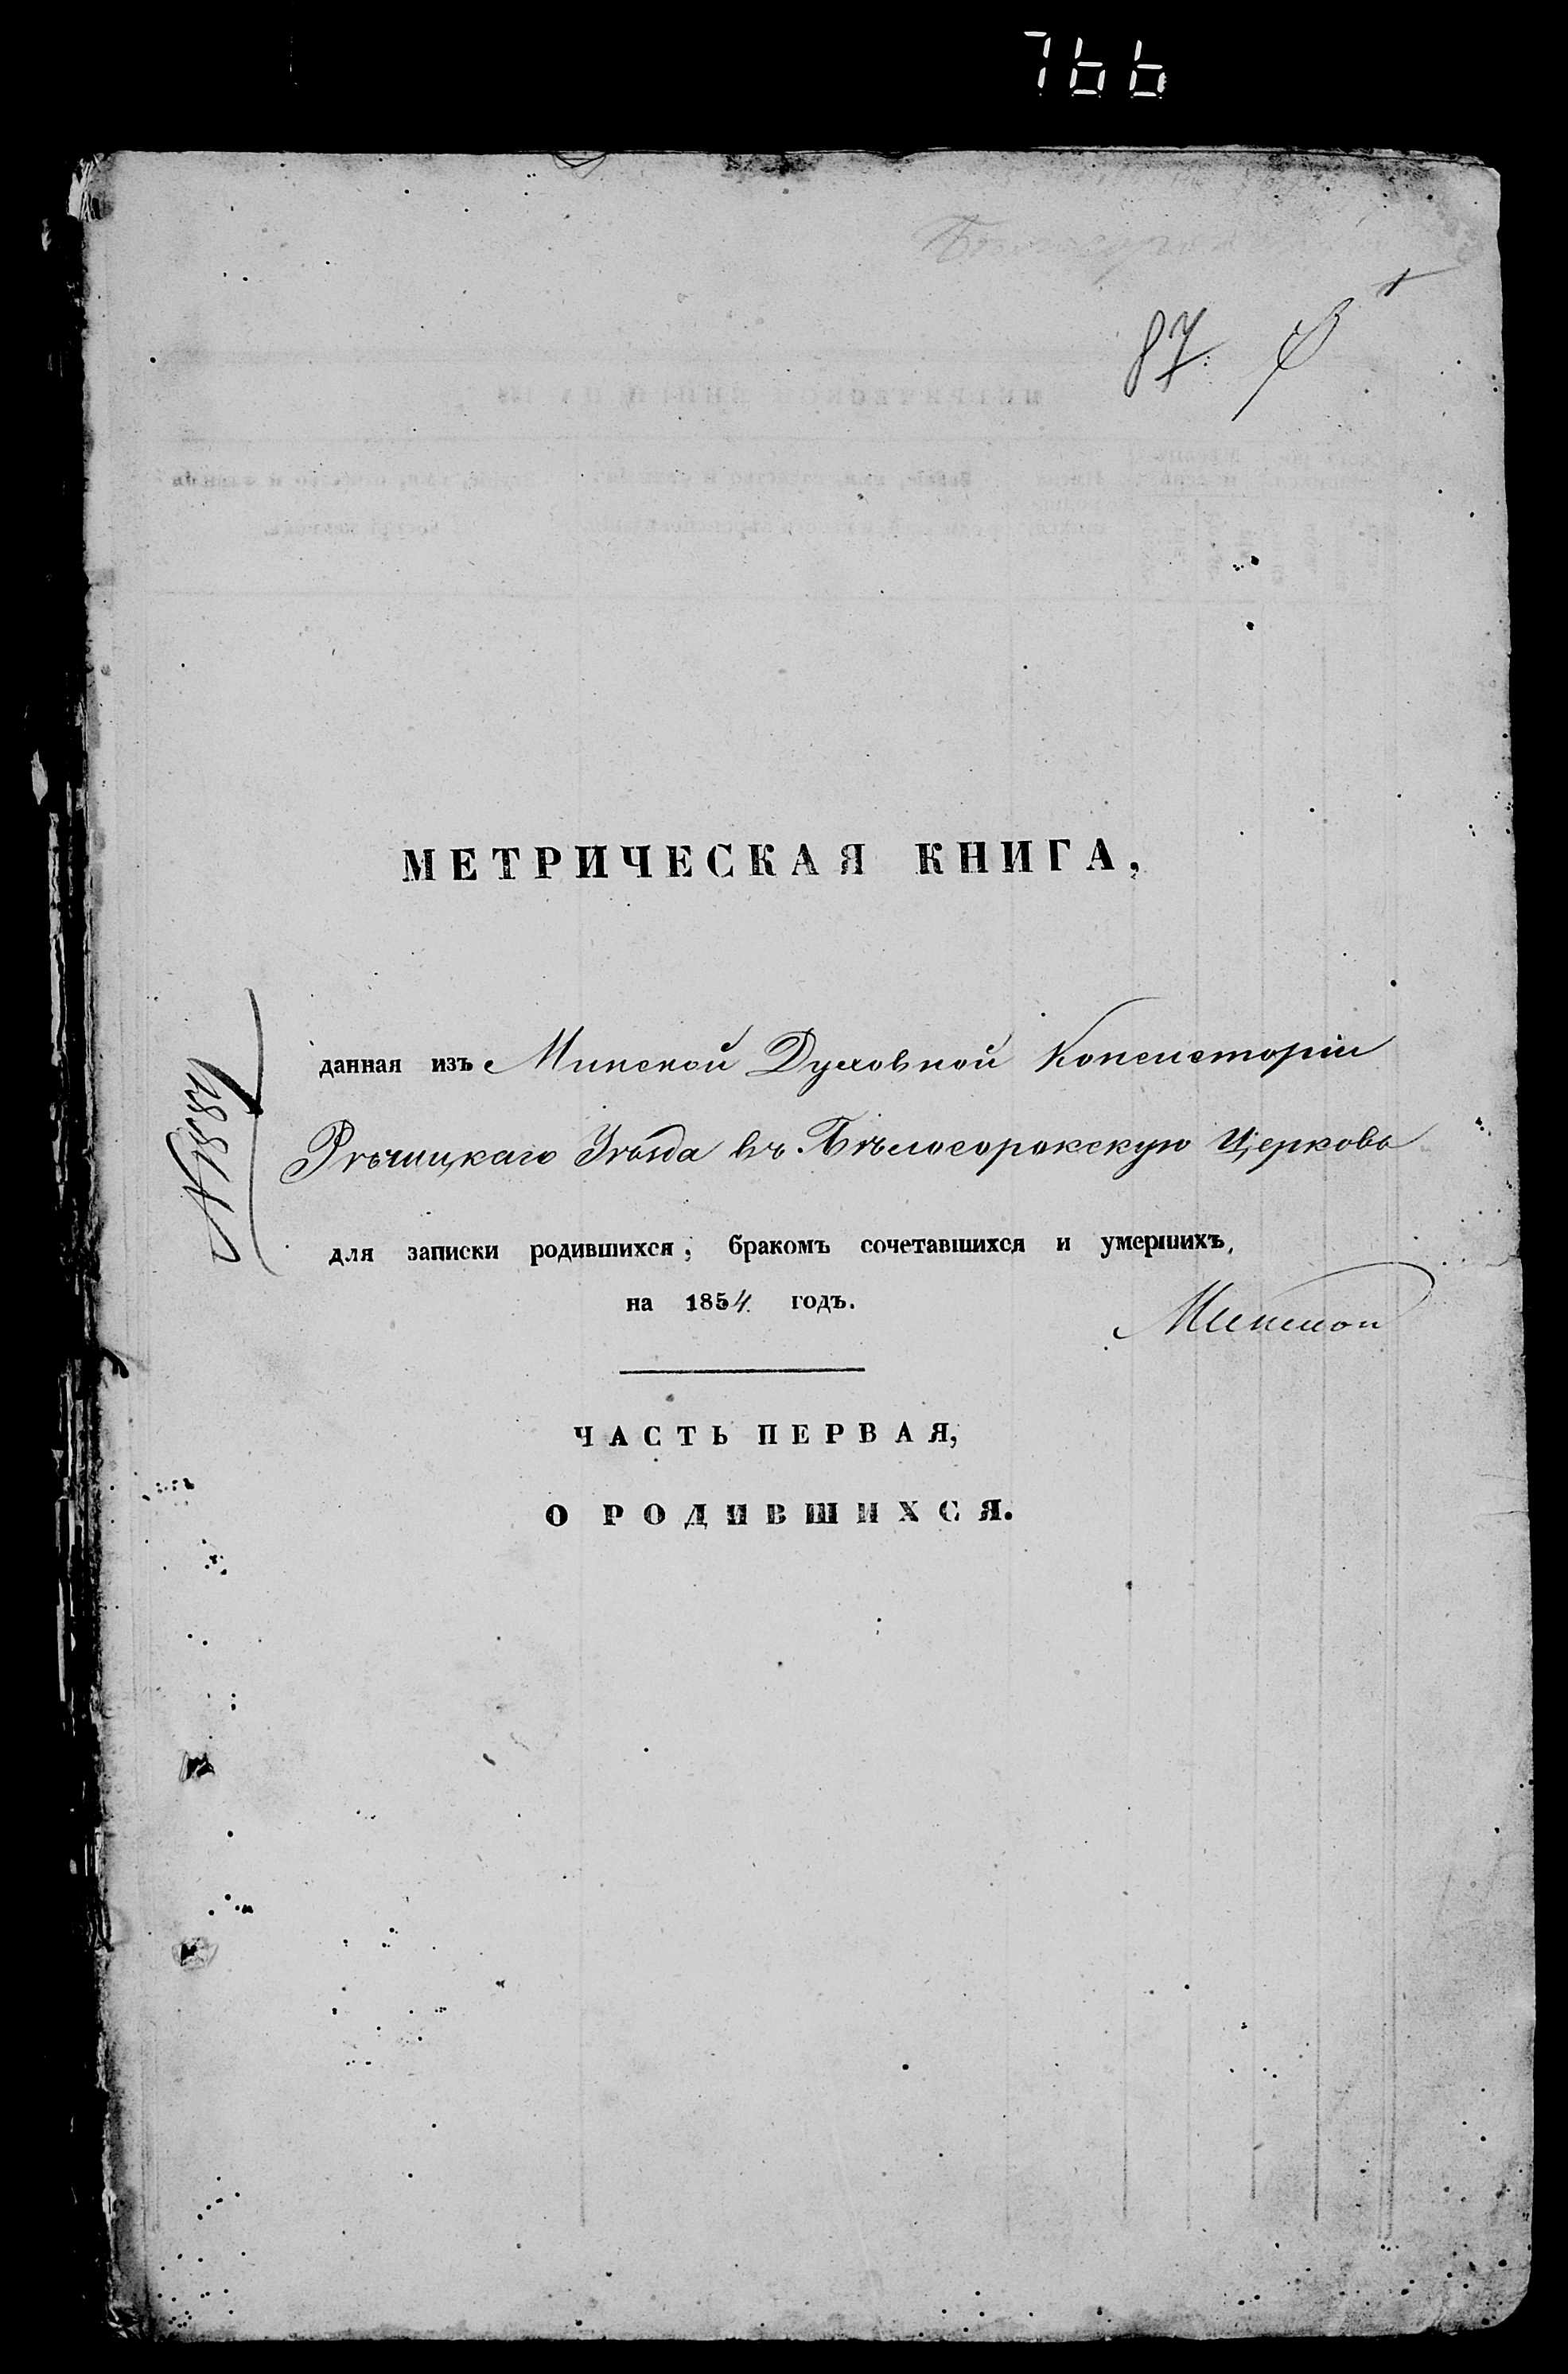 766
87.
МЕТРИЧЕСКАЯ КНИГА,
данная изъ Минской Духовной Консисторіи
Рѣчицкаго Уѣзда въ Бѣлосорокскую Церковь
для записки родившихся, бракомъ сочетавшихся и умершихъ,
на 1854 годъ.
Минской
ЧАСТЬ ПЕРВАЯ,
О РОДИВШИХСЯ.